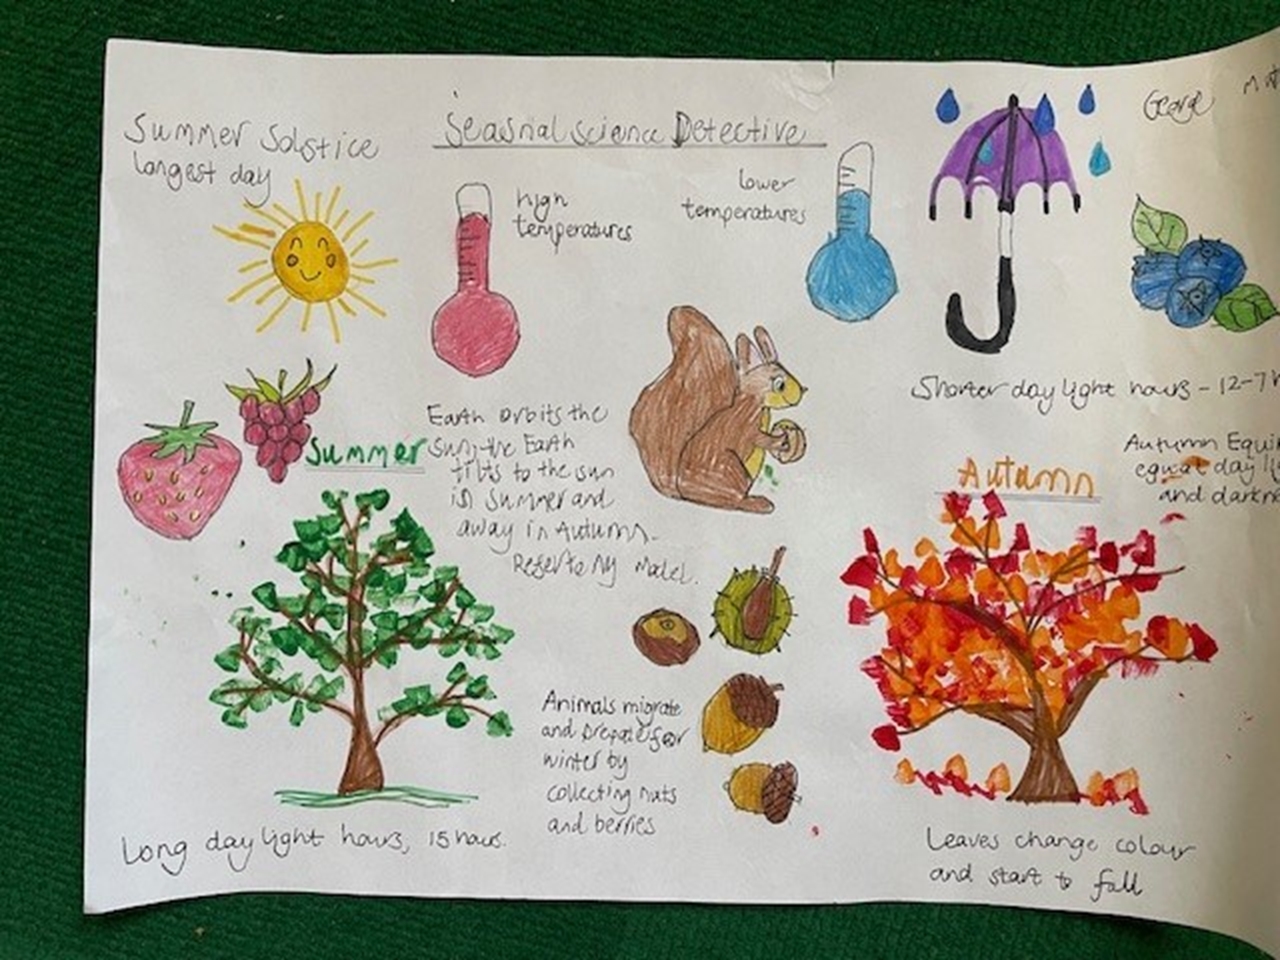 Summer Solstice
longest day
Seasnal science Detective
high
temperatures
lower
temperatures
George
Summer
Earth orbits the
sun, the Earth
tilts to the sun
in summer and
away in Autumn.
Refer to My Model.
Shorter day light hours - 12-7
Autumn
Autumn
equal day
and
Animals migrate
and prepare for
winter by
collecting nuts
and berries
Long day light hours, 15 hours.
Leaves change colour
and start to fall